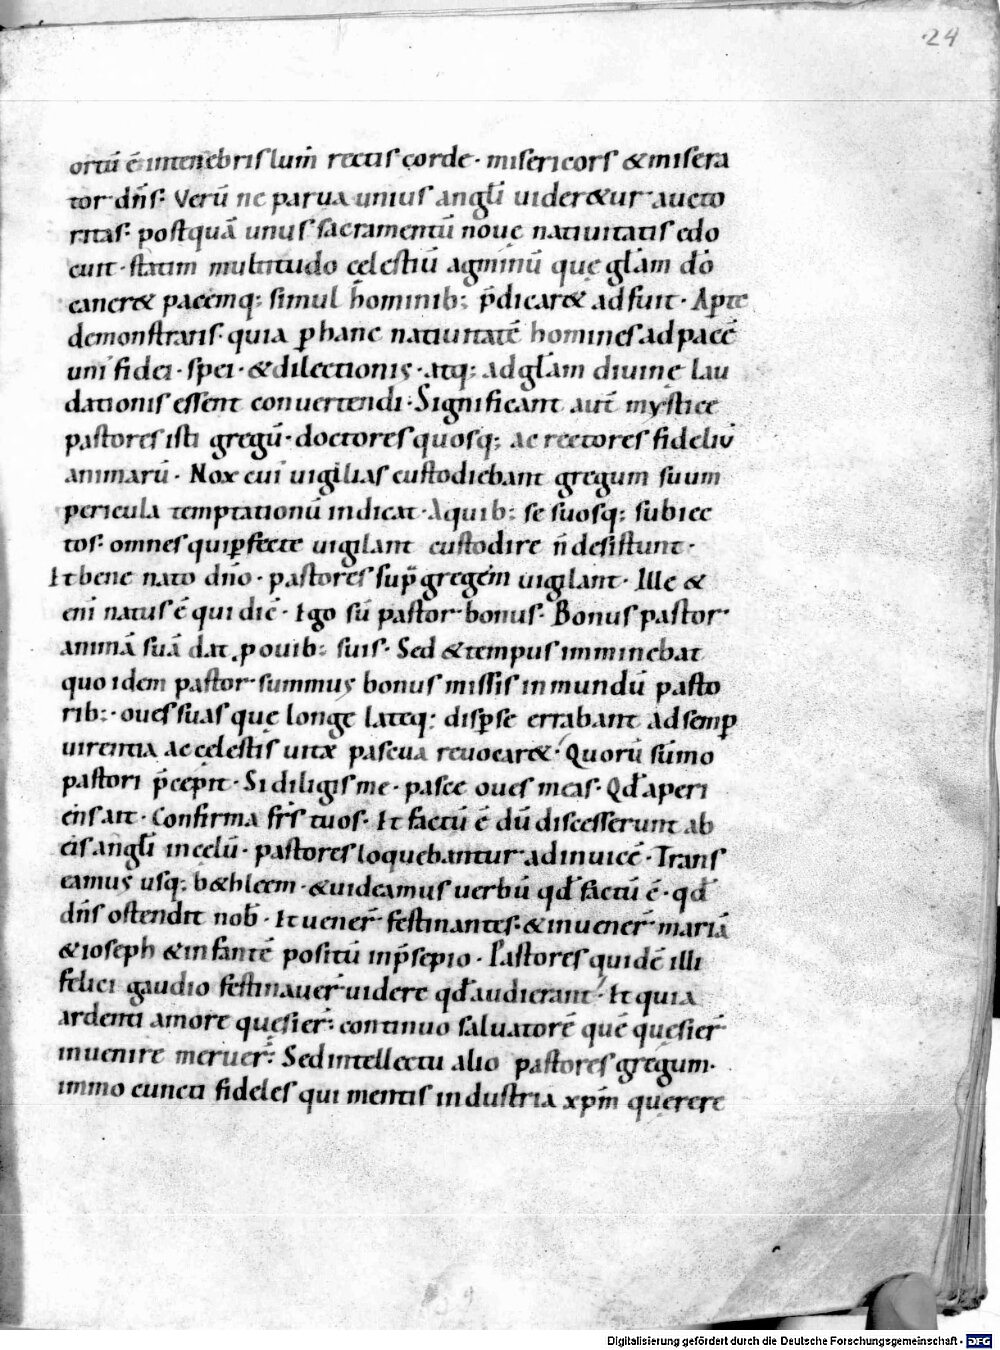 24
ortū ē intenebris lum̄ rectis corde · misericors & misera
tor dn̄s · Verū ne parua unius angli uider&ur aucto
ritas · postquā unus sacramentū nouę natiuitatis edo
cuit · statim multitudo cęlestiū agminū que glam dō
caner& pacemq; simul hominib; p̄dicar& adfuit · Apte
demonstrans · quia ꝑ hanc natiuitatē homines ad pacē
uni fidei · spei · & dilectionis · atq; ad glam diuinę lau
dationis essent conuertendi · Significant aut̄ mystice
pastores isti gregū · doctores quosq; ac rectores fideliū
animarū · Nox cui uigilias custodiebant gregum suum
pericula temptationū indicat · A quib; se suosq; subiec
tos · omnes qui ꝑfecte uigilant custodire n̄ desistunt ·
Et bene nato dn̄o · pastores sup̄ gregem uigilant · Ille &
eni natus ē qui dic̄ · Ego sū pastor bonus · Bonus pastor
animā suā dat ꝓ ouib; suis · Sed & tempus imminebat
quo idem pastor summus bonus missis in mundū pasto
rib; · oues suas quę longe lateq; disꝑse errabant ad semꝑ
uirentia ac cęlestis uitę pascua reuocar& · Quorū sūmo
pastori p̄cepit · Si diligis me · pasce oues meas · Qđ aperi
ens ait · Confirma frs̄ tuos · Et factū ē dū discesserunt ab
eis angli in celū · pastores loquebantur ad inuicē · Trans
eamus usq; b&hleem · & uideamus uerbū qđ factū ē · qđ
dn̄s ostendit nob̄ · Et uener̄ festinantes · & inuener̄ mariā
& ioseph & infantē positū in p̄sepio · Pastores quidē illi
felici gaudio festinauer̄ uidere qđ audierant · Et quia
ardenti amore quesier̄ · continuo saluatorē quē quesier̄
inuenire meruer̄ · Sed intellectu alio pastores gregum ·
immo cuncti fideles qui mentis industria xp̄m querere
Digitalisierung gefördert durch die Deutsche Forschungsgemeinschaft - DFG